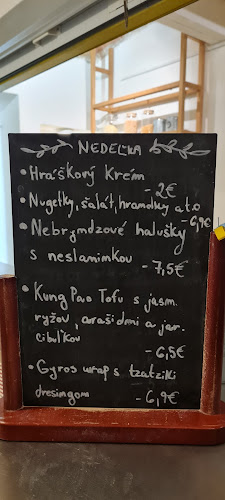 NEDEĽKA
• Hráškový krém
- 2€
• Nugetky, šalát, hranolky a t.o
- 6,9€
• Nebryndzové halušky
s neslaninkou
- 7,5€
• Kung Pao Tofu s jasm.
ryžou, arašidmi a jar.
cibuľkou
- 6,5€
• Gyros wrap s tzatziki
dresingom - 6,9€